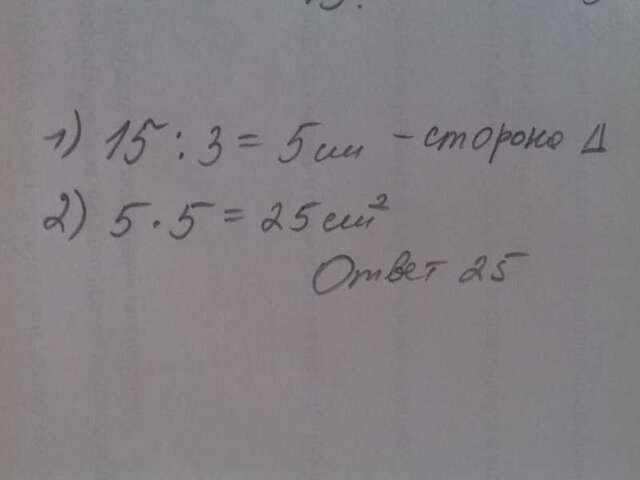 1) 15 : 3 = 5 см – сторона Δ
2) 5 · 5 = 25 см²
Ответ 25